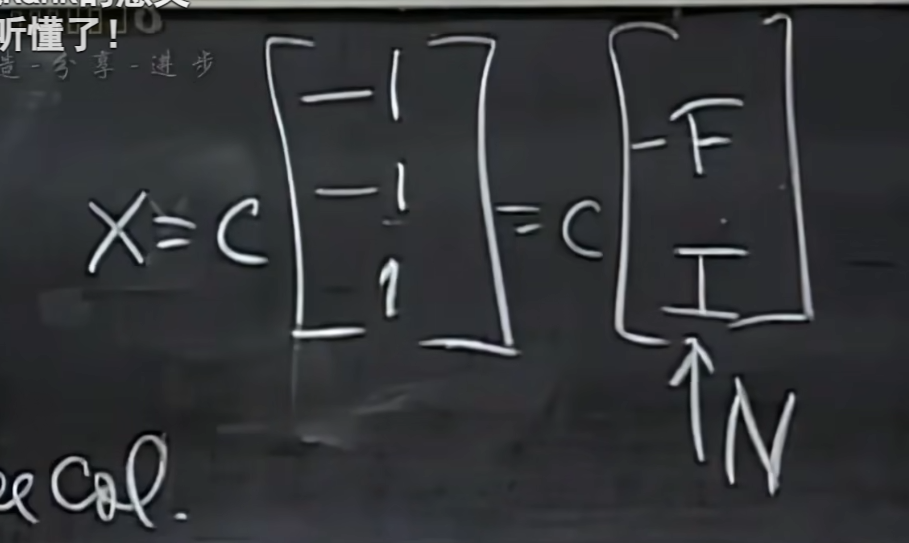 听懂了！
造-分享-进步
X = C [ -1 -1 1 ] = C [ -F I ]
↑ N
Col.